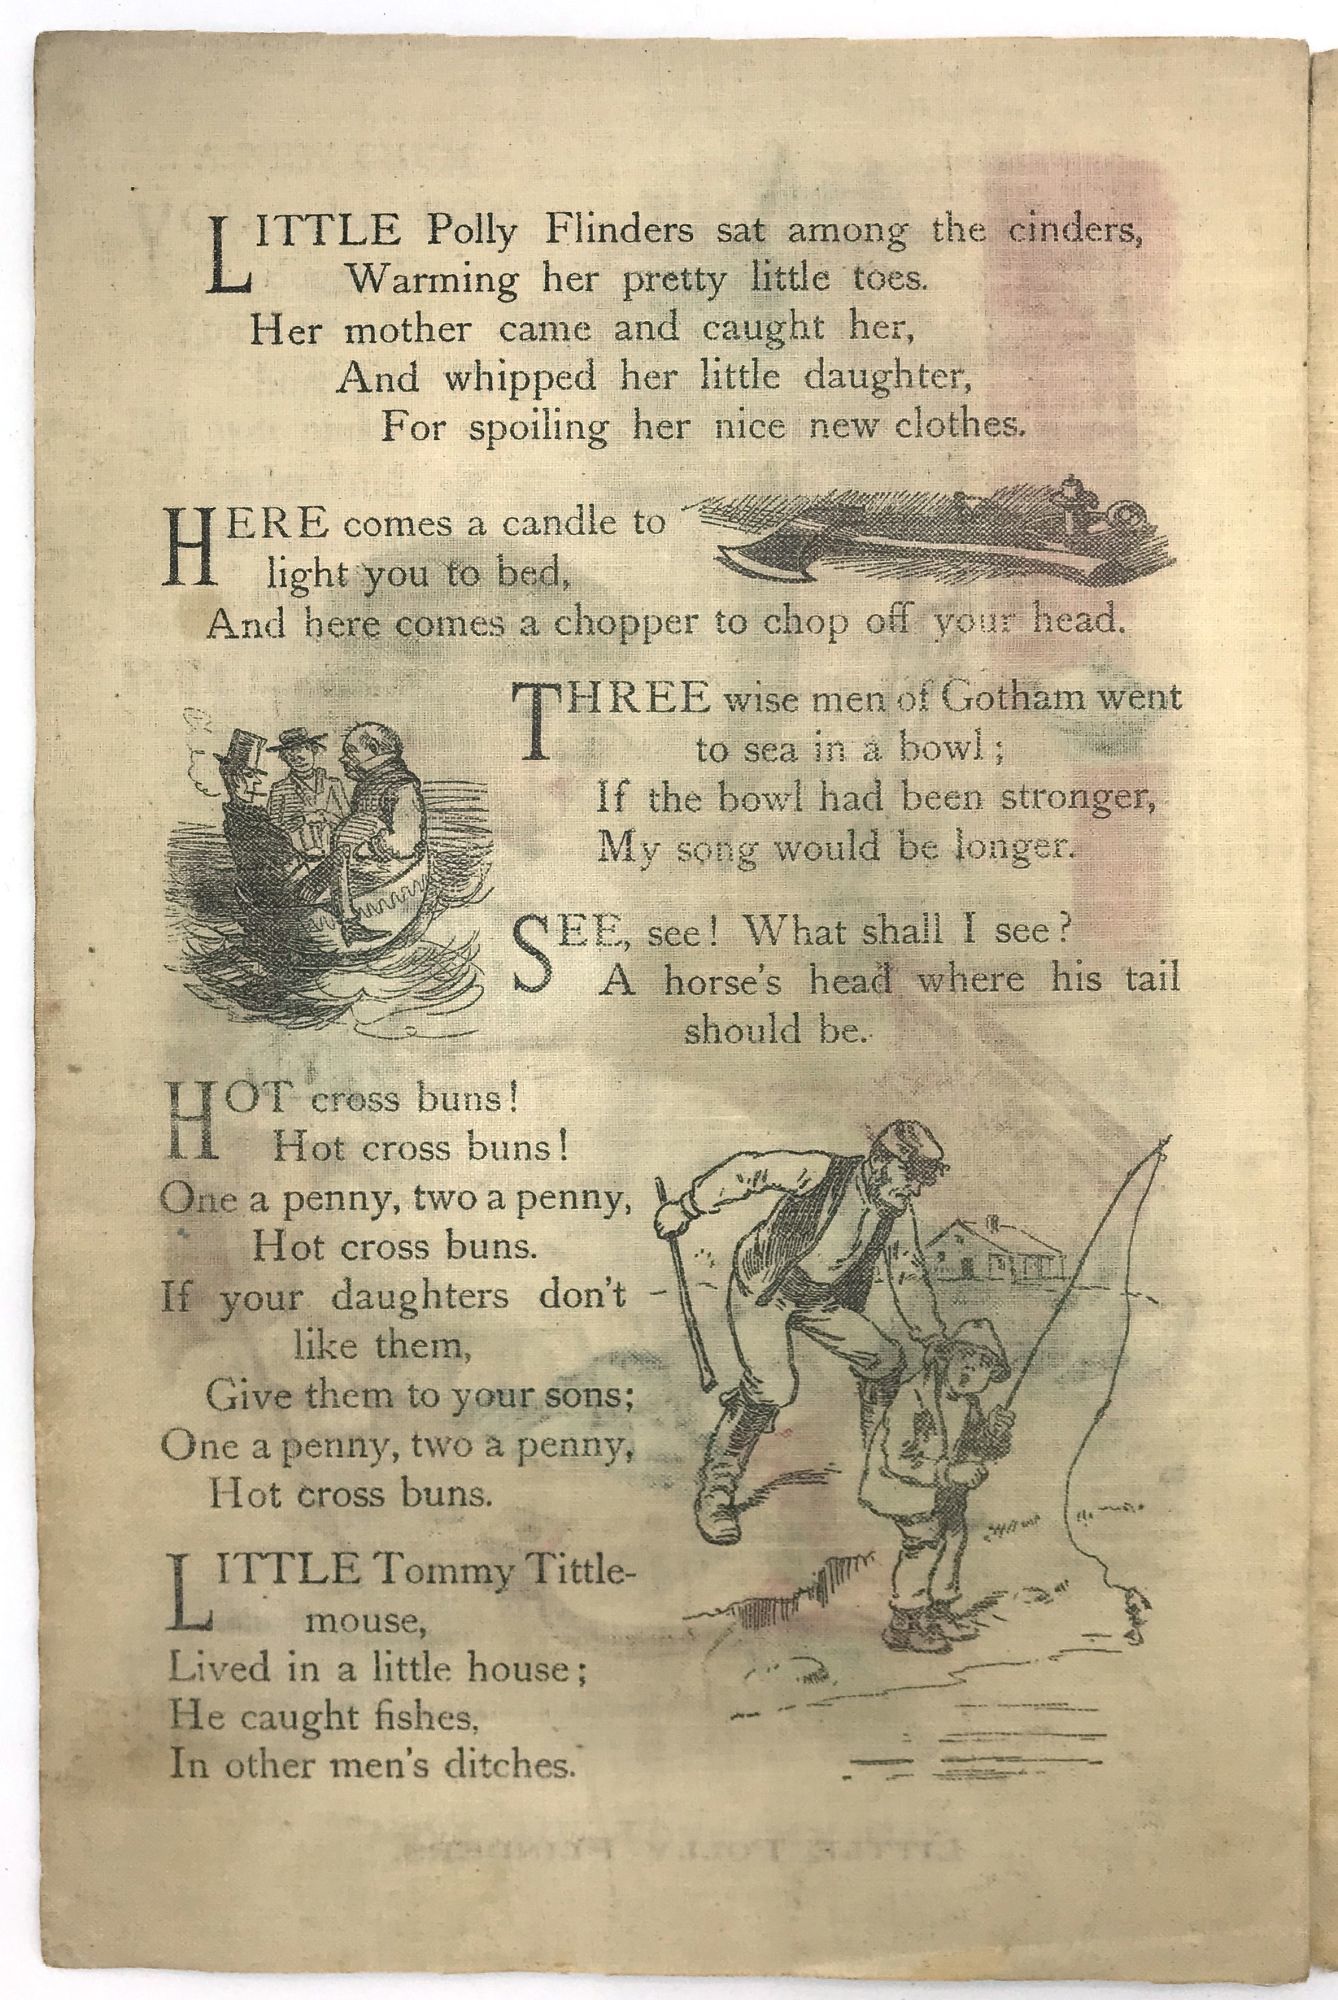 LITTLE Polly Flinders sat among the cinders,
Warming her pretty little toes.
Her mother came and caught her,
And whipped her little daughter,
For spoiling her nice new clothes.
HERE comes a candle to
light you to bed,
And here comes a chopper to chop off your head.
THREE wise men of Gotham went
to sea in a bowl;
If the bowl had been stronger,
My song would be longer.
SEE, see! What shall I see?
A horse's head where his tail
should be.
HOT cross buns!
Hot cross buns!
One a penny, two a penny,
Hot cross buns.
If your daughters don't
like them,
Give them to your sons;
One a penny, two a penny,
Hot cross buns.
LITTLE Tommy Tittle-
mouse,
Lived in a little house;
He caught fishes,
In other men's ditches.
LITTLE POLLY FLINDERS.